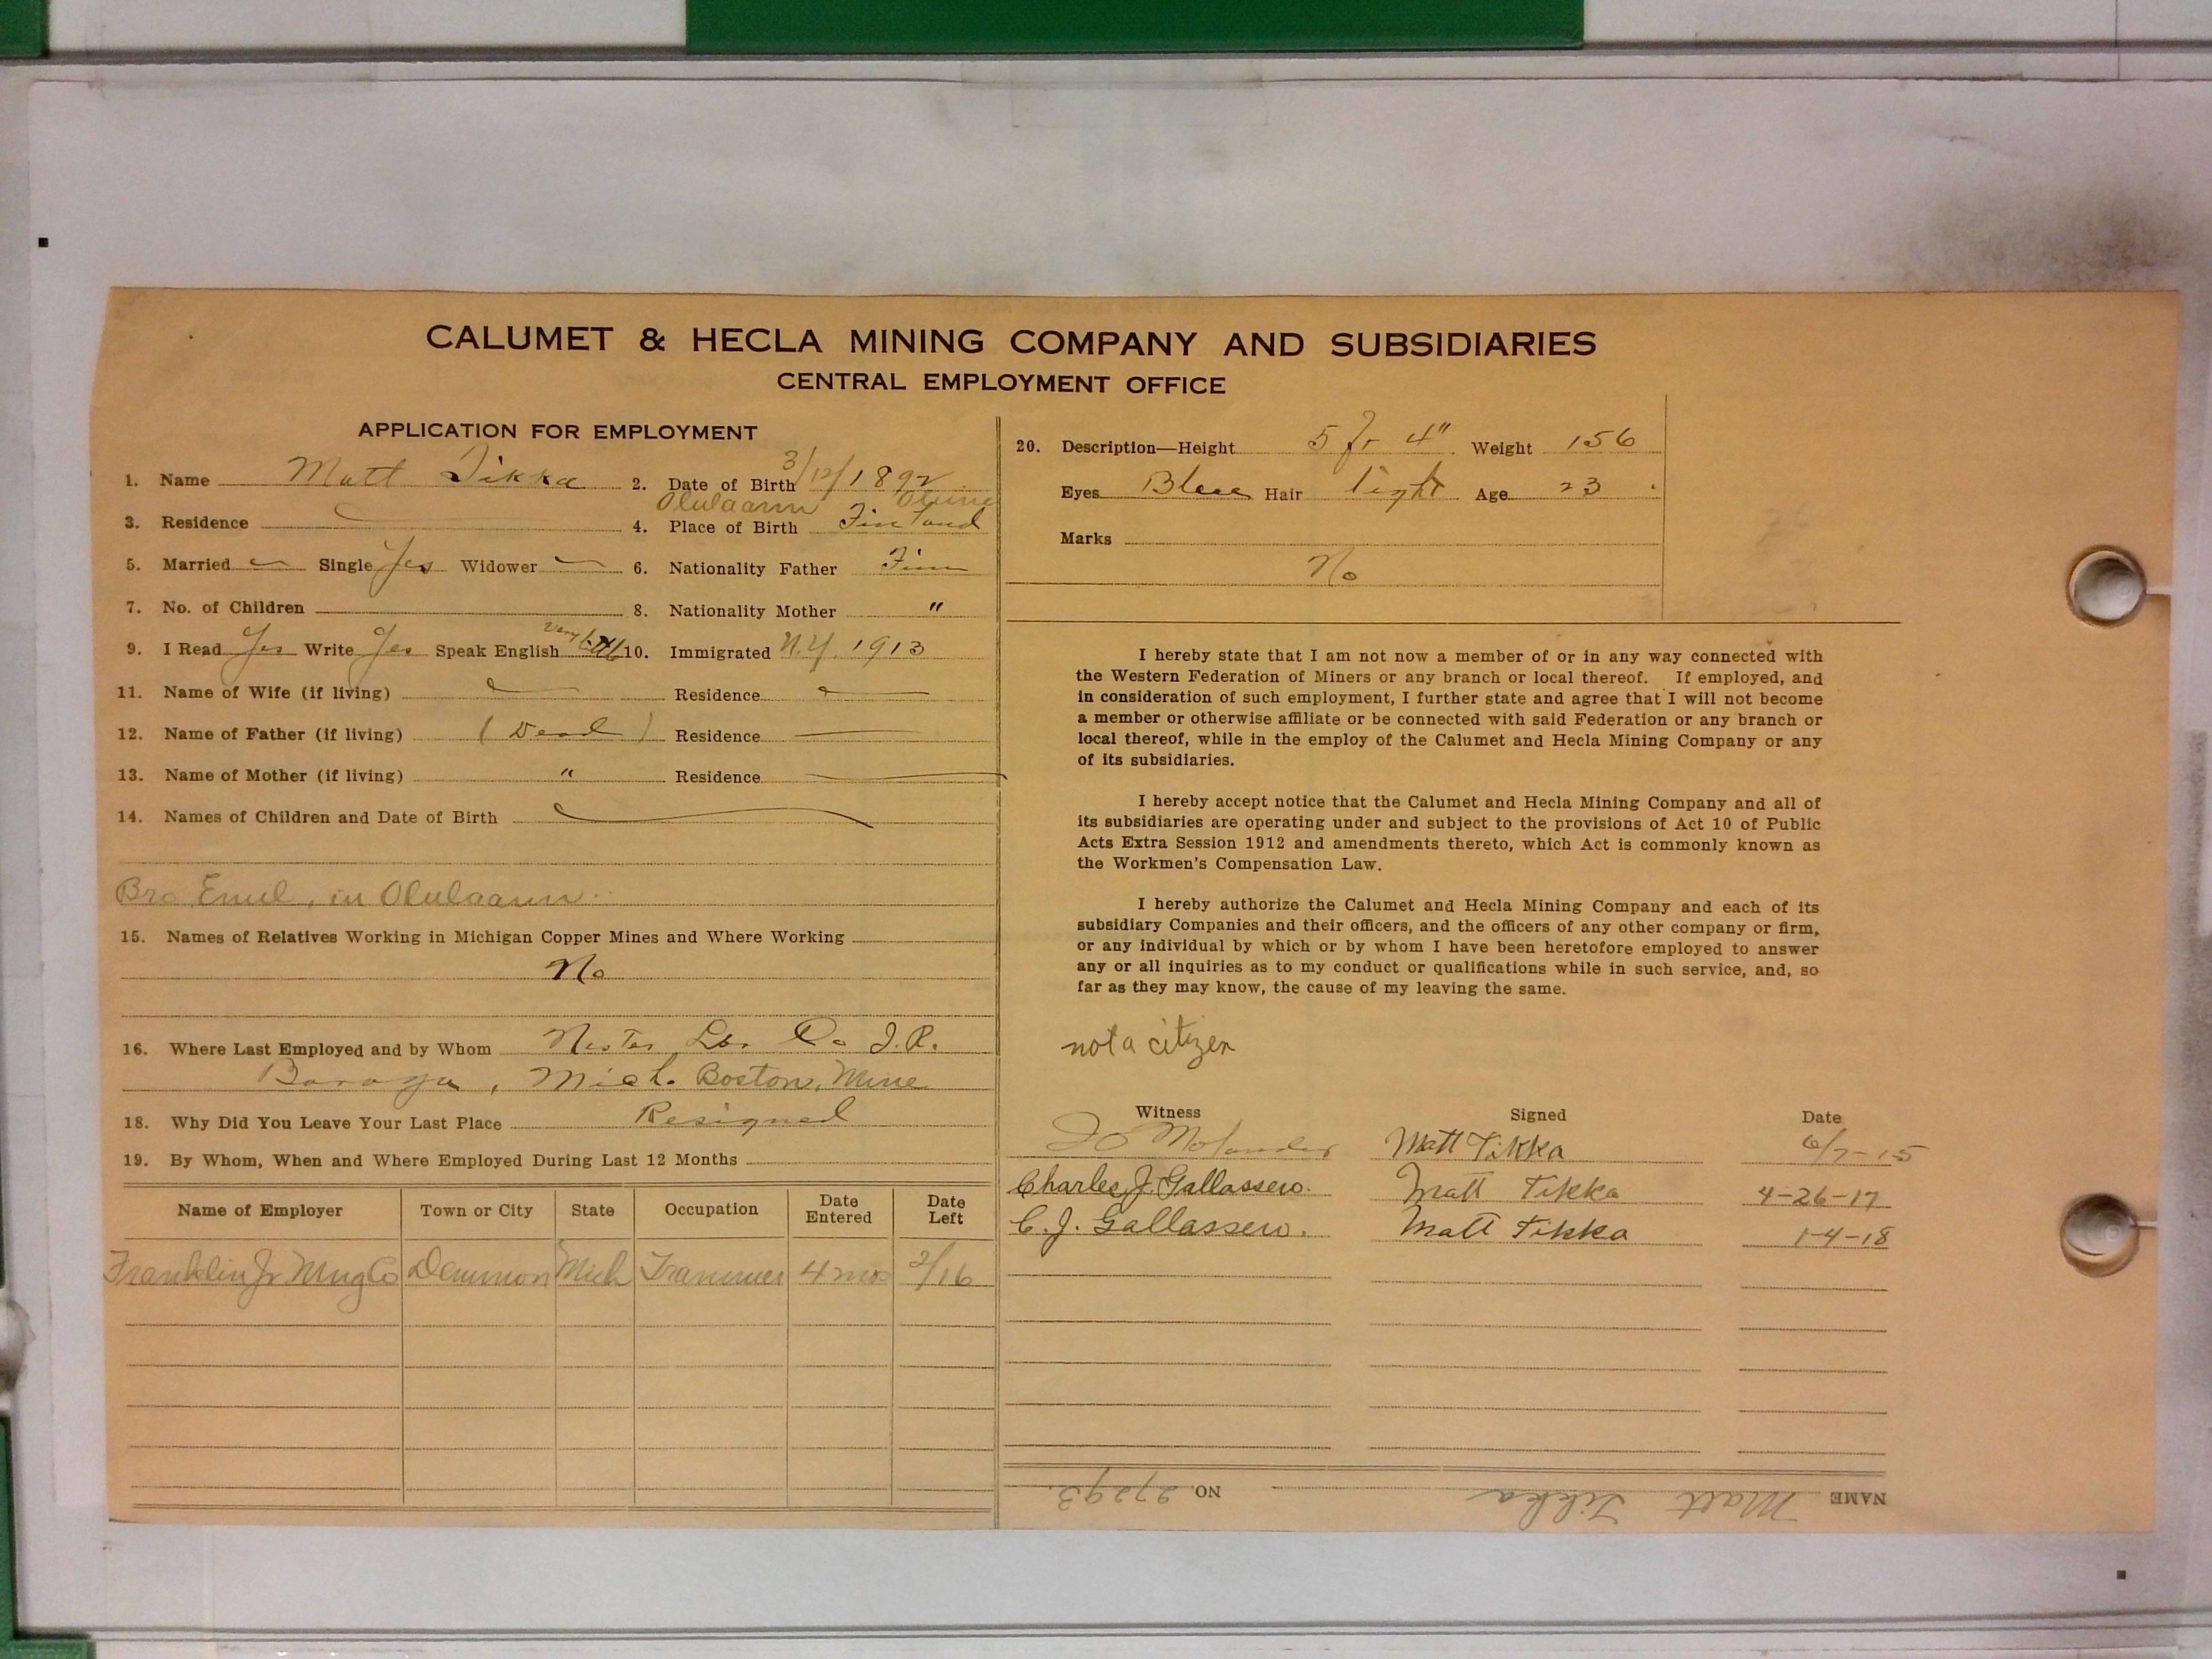 CALUMET & HECLA MINING COMPANY AND SUBSIDIARIES
CENTRAL EMPLOYMENT OFFICE
APPLICATION FOR EMPLOYMENT
1. Name Matt Tikka 2. Date of Birth 3/12/1892
Olulaann
3. Residence 4. Place of Birth Finland
5. Married Single Yes Widower 6. Nationality Father Finn
7. No. of Children 8. Nationality Mother "
9. I Read Yes Write Yes Speak English Very little 10. Immigrated N.Y. 1913
11. Name of Wife (if living) Residence
12. Name of Father (if living) (Dead) Residence
13. Name of Mother (if living) " Residence
14. Names of Children and Date of Birth
Bro Emil, in Olulaann.
15. Names of Relatives Working in Michigan Copper Mines and Where Working
No
16. Where Last Employed and by Whom Nester Lbr Co
Baraga, Mich. Boston, Mine
18. Why Did You Leave Your Last Place Resigned
19. By Whom, When and Where Employed During Last 12 Months
Name of Employer Town or City State Occupation Date Entered Date Left
Franklin Jr Mng Co Demmon Mich Trammer 4 mos 2/16
20. Description—Height 5 ft 4" Weight 156
Eyes Blue Hair light Age 23
Marks
No
I hereby state that I am not now a member of or in any way connected with
the Western Federation of Miners or any branch or local thereof. If employed, and
in consideration of such employment, I further state and agree that I will not become
a member or otherwise affiliate or be connected with said Federation or any branch or
local thereof, while in the employ of the Calumet and Hecla Mining Company or any
of its subsidiaries.
I hereby accept notice that the Calumet and Hecla Mining Company and all of
its subsidiaries are operating under and subject to the provisions of Act 10 of Public
Acts Extra Session 1912 and amendments thereto, which Act is commonly known as
the Workmen's Compensation Law.
I hereby authorize the Calumet and Hecla Mining Company and each of its
subsidiary Companies and their officers, and the officers of any other company or firm,
or any individual by which or by whom I have been heretofore employed to answer
any or all inquiries as to my conduct or qualifications while in such service, and, so
far as they may know, the cause of my leaving the same.
not a citizen
Witness Signed Date
Molander Matt Tikka 6/7-15
Charles J. Gallassero. Matt Tikka 4-26-17
C. J. Gallassero. Matt Tikka 1-4-18
NAME Matt Tikka NO. 27293.